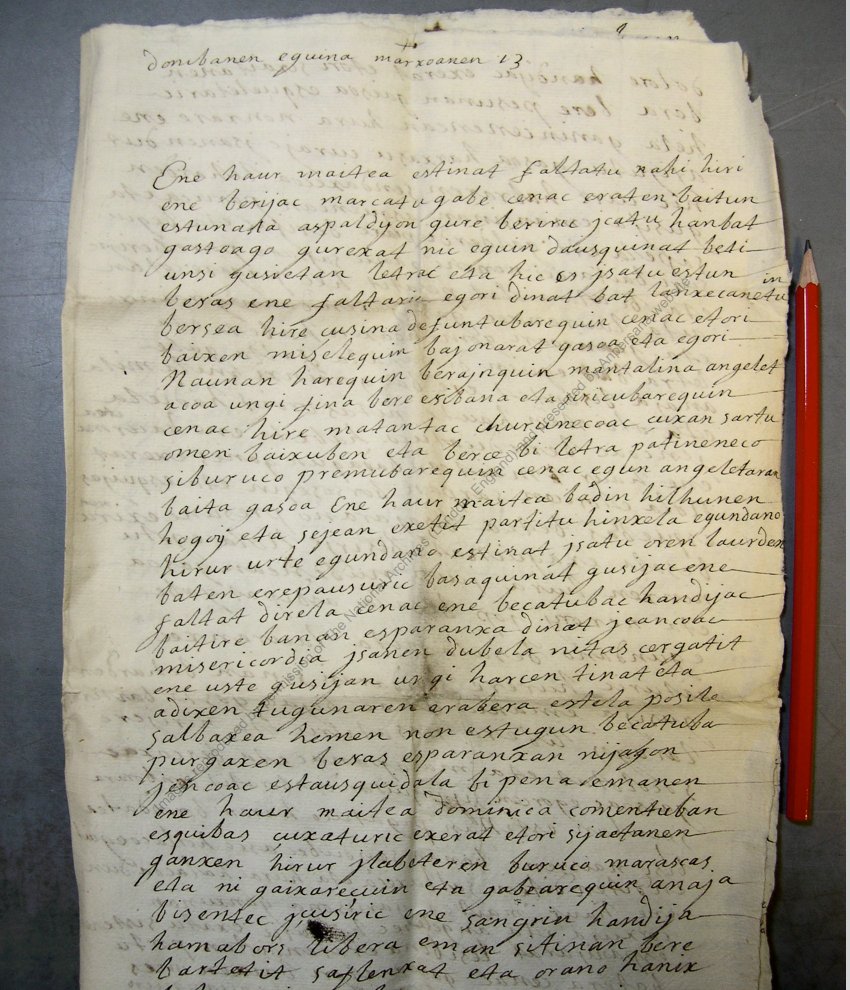 donibanen eguina marxoanen 13
Ene haur maitea estinat faltatu nahi hiri
ene berijac marcatu gabe cenac eraten baitun
estunala aspaldijon gure beriric jcatu hanbat
gastoago gurexat nic eguin dausquinat beti
unsi gusietan letrac eta hic es jsatu estun
beras ene faltaric egori dinat bat lanxecanetu in
bersea hire cusina defuntubarequin cenac etori
baixen miselequin bajonarat gasoa eta egori
Naunan harequin berajnquin mantalina angelet
acoa ungi fina bere esibana eta siricubarequin
cenac hire matantac churunecoac cuxan sartu
omen baixuben eta berce bi letra patineneco
siburuco premubarequin cenac egun angeletaran
baita gasoa Ene haur maitea badin hilhunen
hogoÿ eta sejean exetit partitu hinxela egundano
hirur urte egundano estinat jsatu oren laurden
baten erepausuric basaquinat gusijac ene
faltat direla cenac ene becatubac handijac
baitire banan esparanxa dinat jeancoac
misericordia jsanen dubela nitas cergatit
ene uste gusijan urgi harcen tinat eta
adixen tugunaren erabera estela posile
salbaxea hemen non estugun becatuba
purgaxen beras esparanxan nijagon
jencoac estausquidala bi pena emanen
ene haur maitea dominica comentuban
esquibas cuxaturic exerat etori sijaetanen
ganxen hirur jlabeteren buruco marascas
eta ni gaixarequin eta gabearequin anaja
bisentec jcusiric ene sangrin handija
hamabors libera eman sitinan bere
bartetit saflenxat eta orano hanix